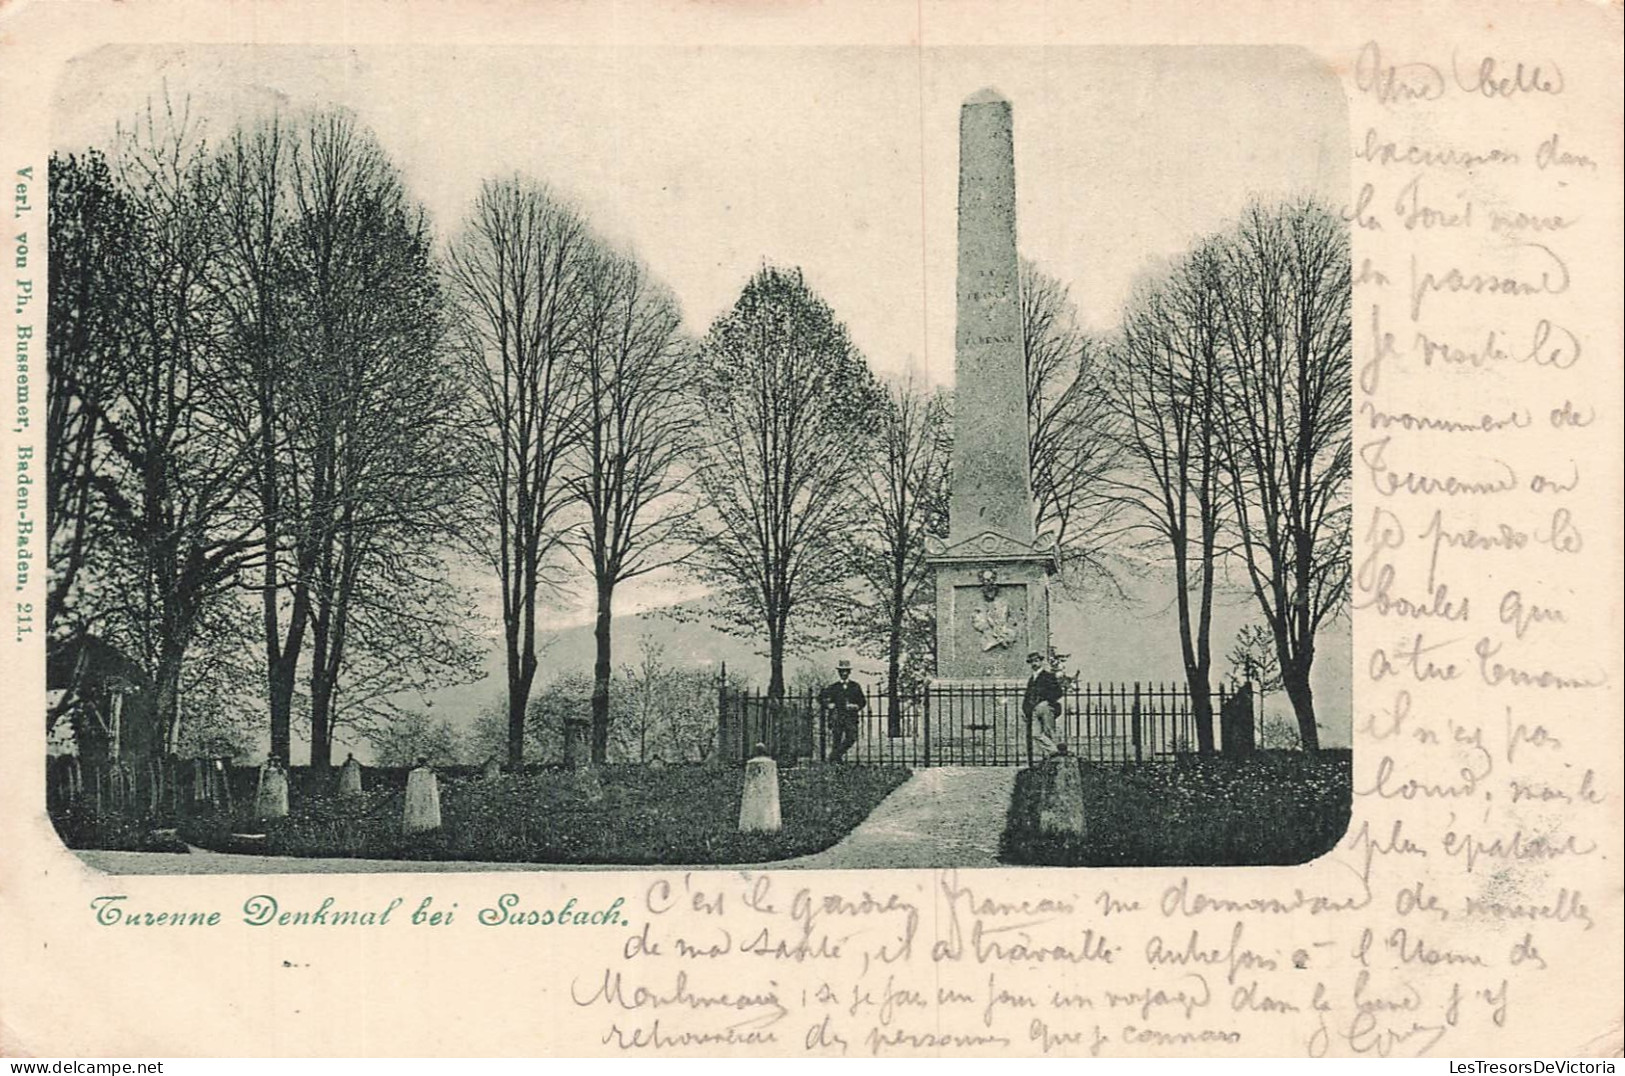 Verl. von Ph. Bussemer, Baden-Baden. 211.
LA
FRANCE
A
TURENNE
Turenne Denkmal bei Sassbach.
Une belle
excursion dans
la Forêt noire
en passant
Je visite le
monument de
Turenne ou
je prends le
boulet qui
a tué Turenne
il n'est pas
lourd, mais le
plus épatant
C'est le gardien français me demandant des nouvelles
de ma santé, il a travaillé autrefois à l'Usine des
Moulineaux, si je fais un jour un voyage dans la lune j'y
retrouverai des personnes que je connais
LesTresorsDeVictoria